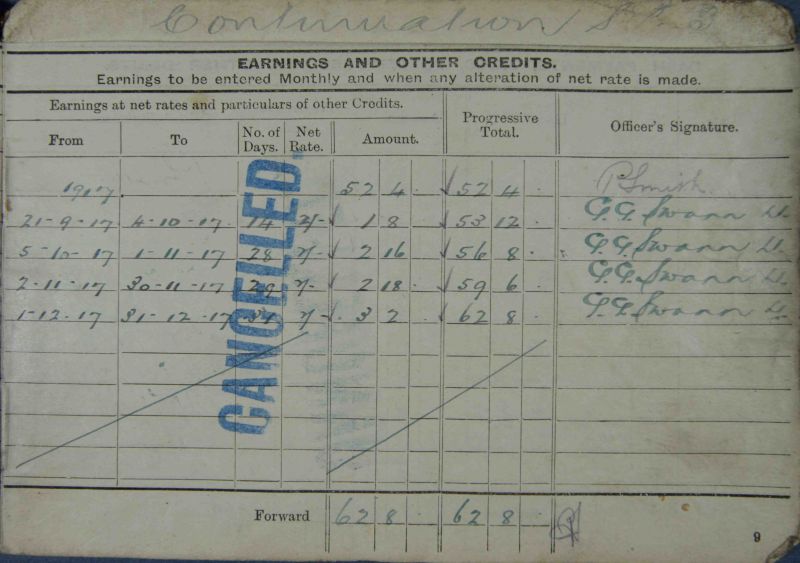 Continuation Sht 3
EARNINGS AND OTHER CREDITS.
Earnings to be entered Monthly and when any alteration of net rate is made.
Earnings at net rates and particulars of other Credits.
Progressive Total.
Officer's Signature.
From To No. of Days. Net Rate. Amount.
1917 52 4 · 52 4 · P Smith
21-9-17 4-10-17 14 2/- 1 8 53 12 · G. G. Swann Lt.
5-10-17 1-11-17 28 2/- 2 16 56 8 · G. G. Swann Lt.
2-11-17 30-11-17 29 2/- 2 18 · 59 6 · G. G. Swann Lt.
1-12-17 31-12-17 31 2/- 3 2 62 8 · G. G. Swann Lt.
CANCELLED.
Forward 62 8 · 62 8 ·
9